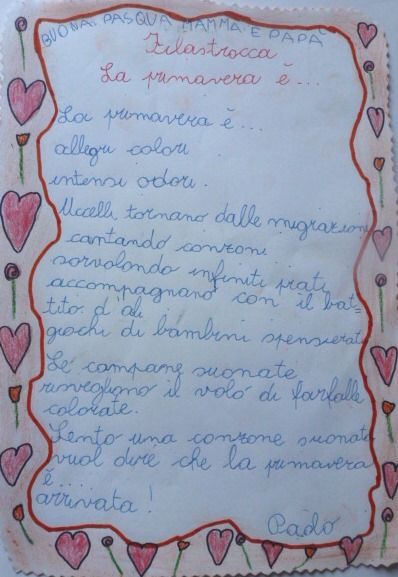 BUONA PASQUA MAMMA E PAPÀ
Filastrocca
La primavera è...
La primavera è...
allegri colori
intensi odori.
Uccelli tornano dalle migrazioni
cantando canzoni
sorvolando infiniti prati
accompagnano con il bat=
tito d'ali
giochi di bambini spensierati
Le campane suonate
risvegliano il volo di farfalle
colorate.
Sento una canzone suonata
vuol dire che la primavera
è....
arrivata!